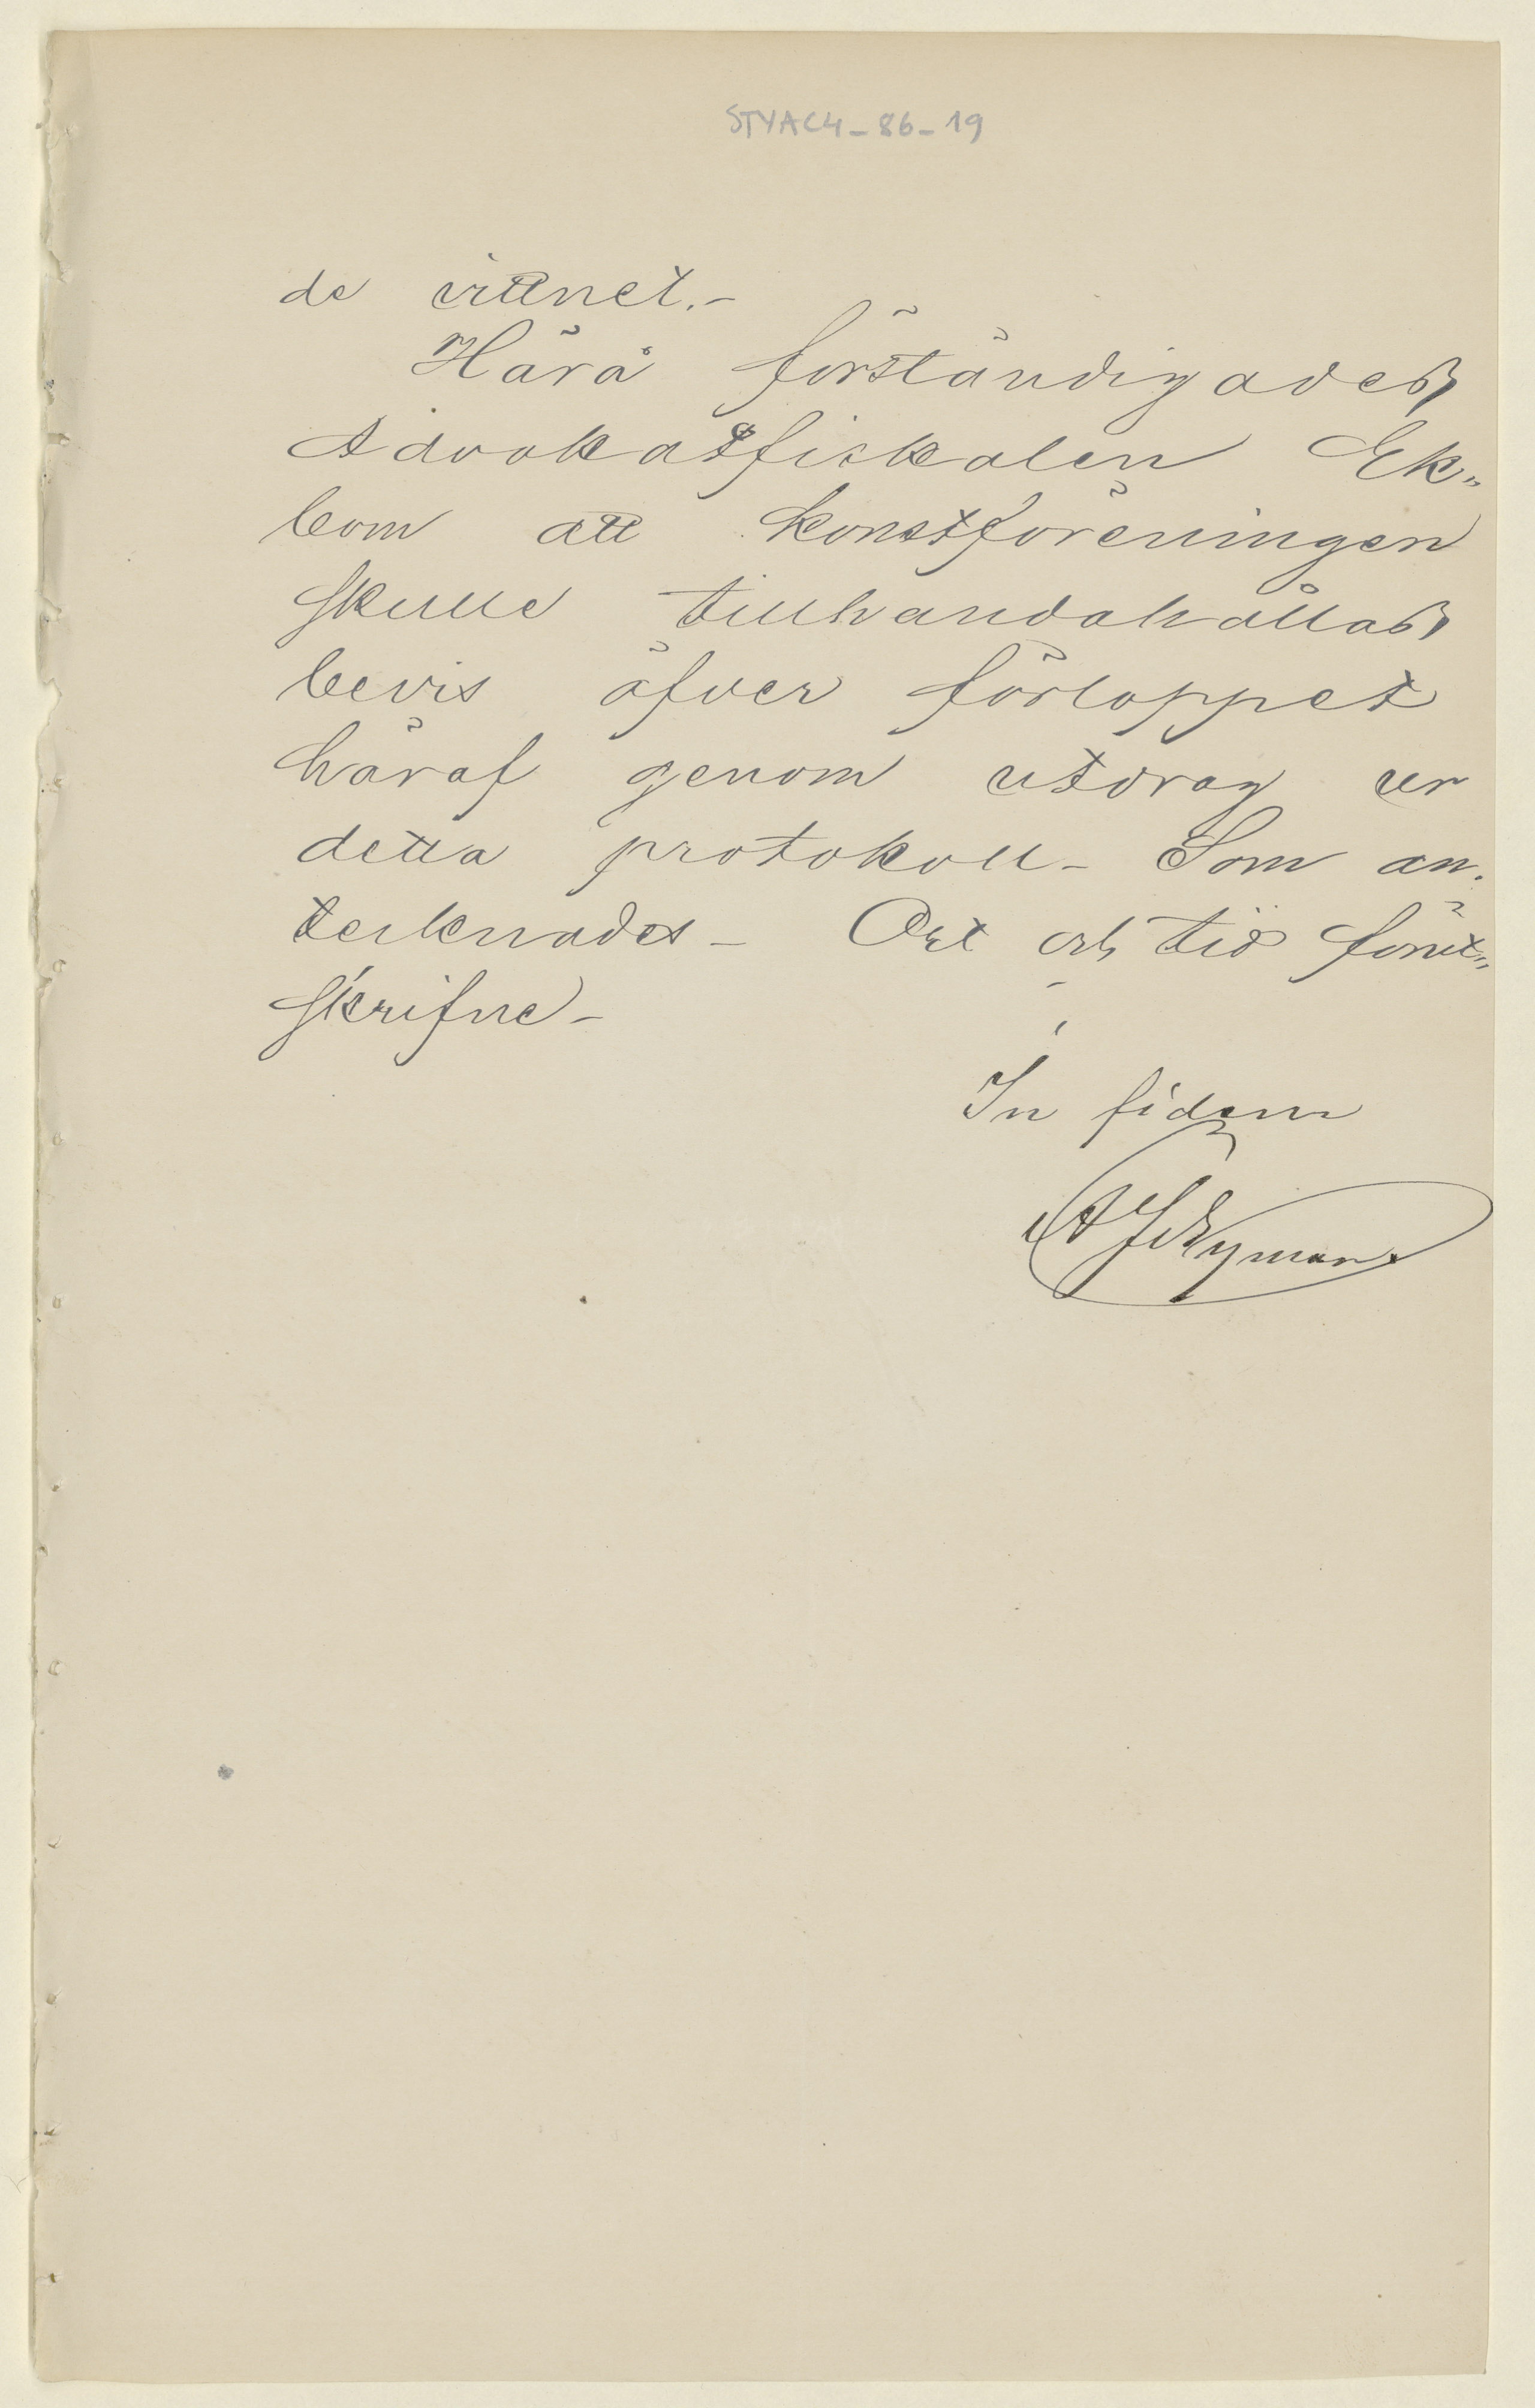 STYAC4-86-19
de vittnet.-
Härå förständigades
Advokatfiskalen Ek„
bom att konstföreningen
skulle tillhandahållas
bevis öfver förloppet
häraf genom utdrag ur
detta protokoll- Som an-
tecknades- Ort och tid förut„
skrifne-
In fidem
Nyman